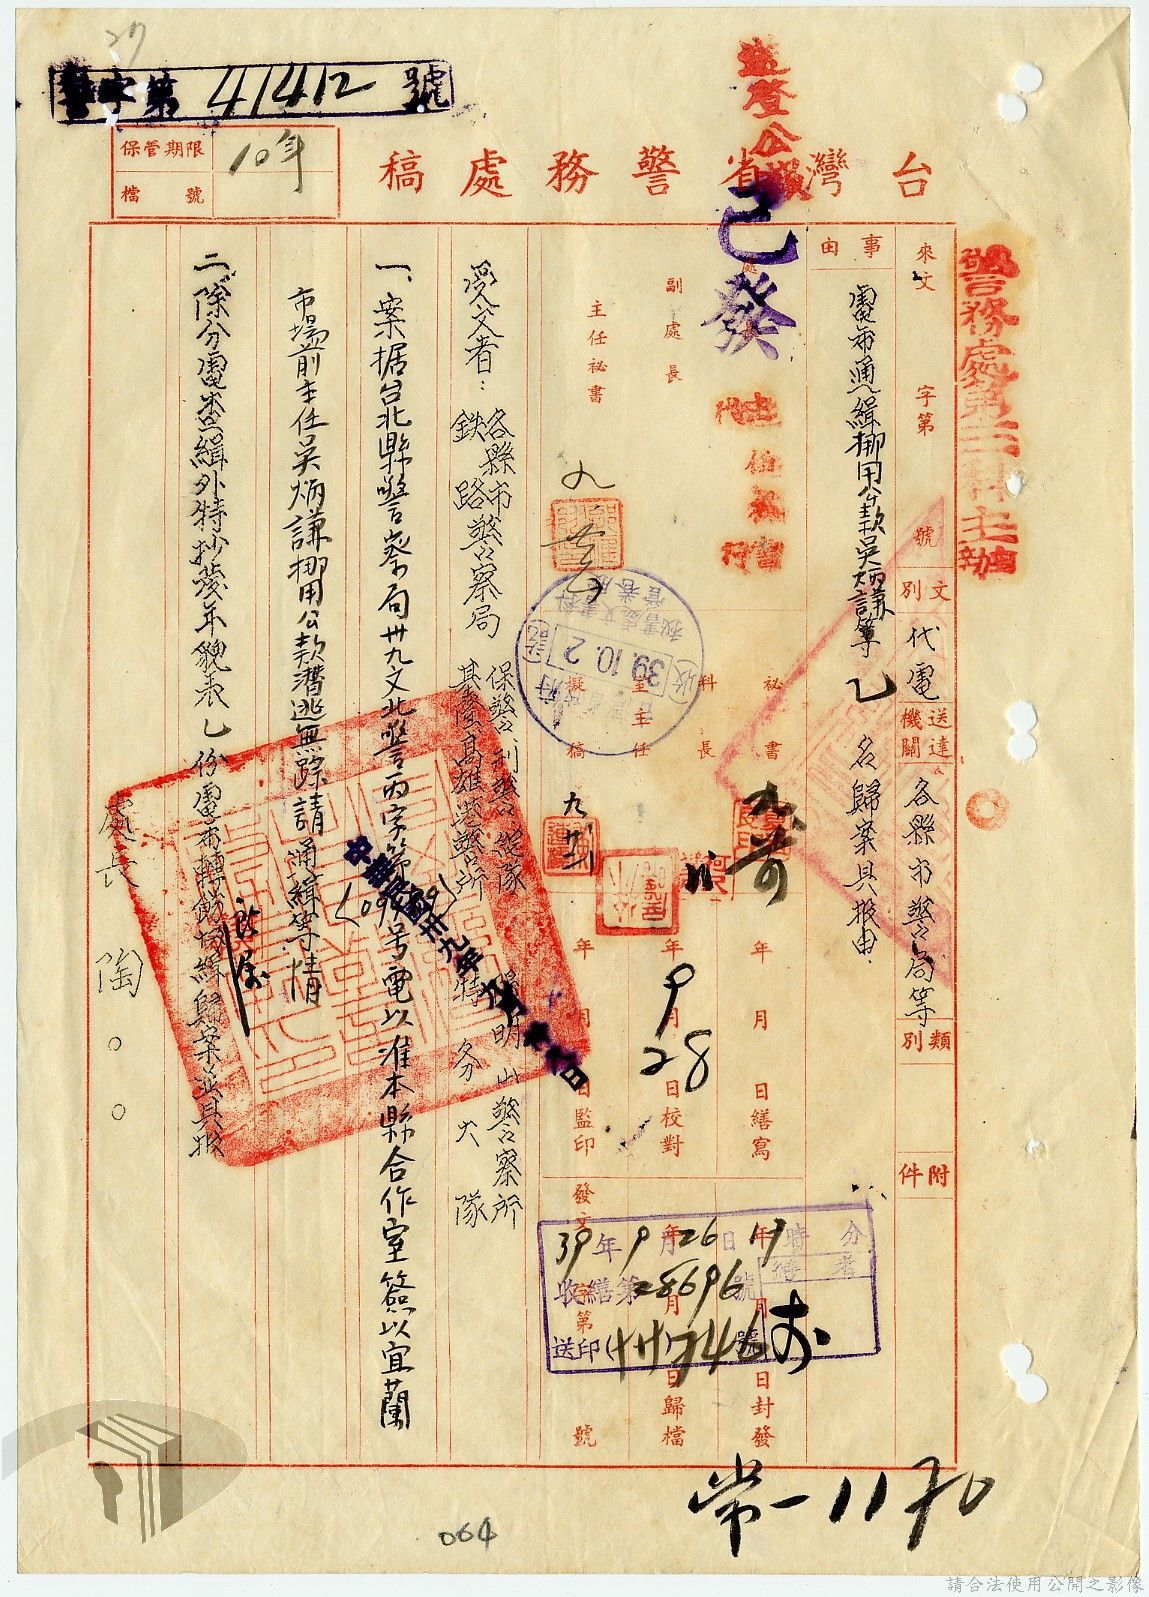 27
警字第41412號
保管期限 10年
檔號
逕登公報
台灣省警務處稿
警務處第三科主辦
來文 字第 號
文別 代電
送達機關 各縣市警局等
類別
附件
事由
電希通緝挪用公款吳炳謙等乙名歸案具報由
已發
處長
副處長
主任秘書
主任秘書代行
秘書
科長
室主任
擬稿
39.10.2
年 月 日繕寫
年9月28日校對
年 月 日監印
年 月 日封發
年 月 日歸檔
發文 字第 號
39年9月26日17時 分
收繕第28696號
繕者
送印
受文者：各縣市警察局 保警、刑警總隊 陽明山警察所
鉄路警察局 基隆高雄港警所 特務大隊
一、案据台北縣警察局卅九文北警丙字第 号電以准本縣合作室簽以宜蘭
市場前主任吳炳謙挪用公款潛逃無踪請通緝等情
二、除分電查緝外特抄發年貌表乙份電希轉飭協緝歸案並具报
處長 陶○○
中華民國卅九年
常-1170
064
請合法使用公開之影像